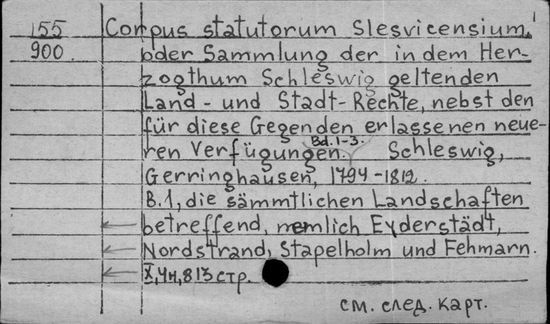 155 Corpus statutorum Slesvicensium,
900. oder Sammlung der in dem Her-
zogthum Schleswig geltenden
Land- und Stadt-Rechte, nebst den
für diese Gegenden erlassenen neue-
ren Verfügungen. Bd. 1-3. Schleswig,
Gerringhausen, 1794-1812.
B.1, die sämmtlichen Landschaften
betreffend, nemlich Eyderstädt,
Nordstrand, Stapelholm und Fehmarn.
X, 4н, 813 стр.
см. след. карт.